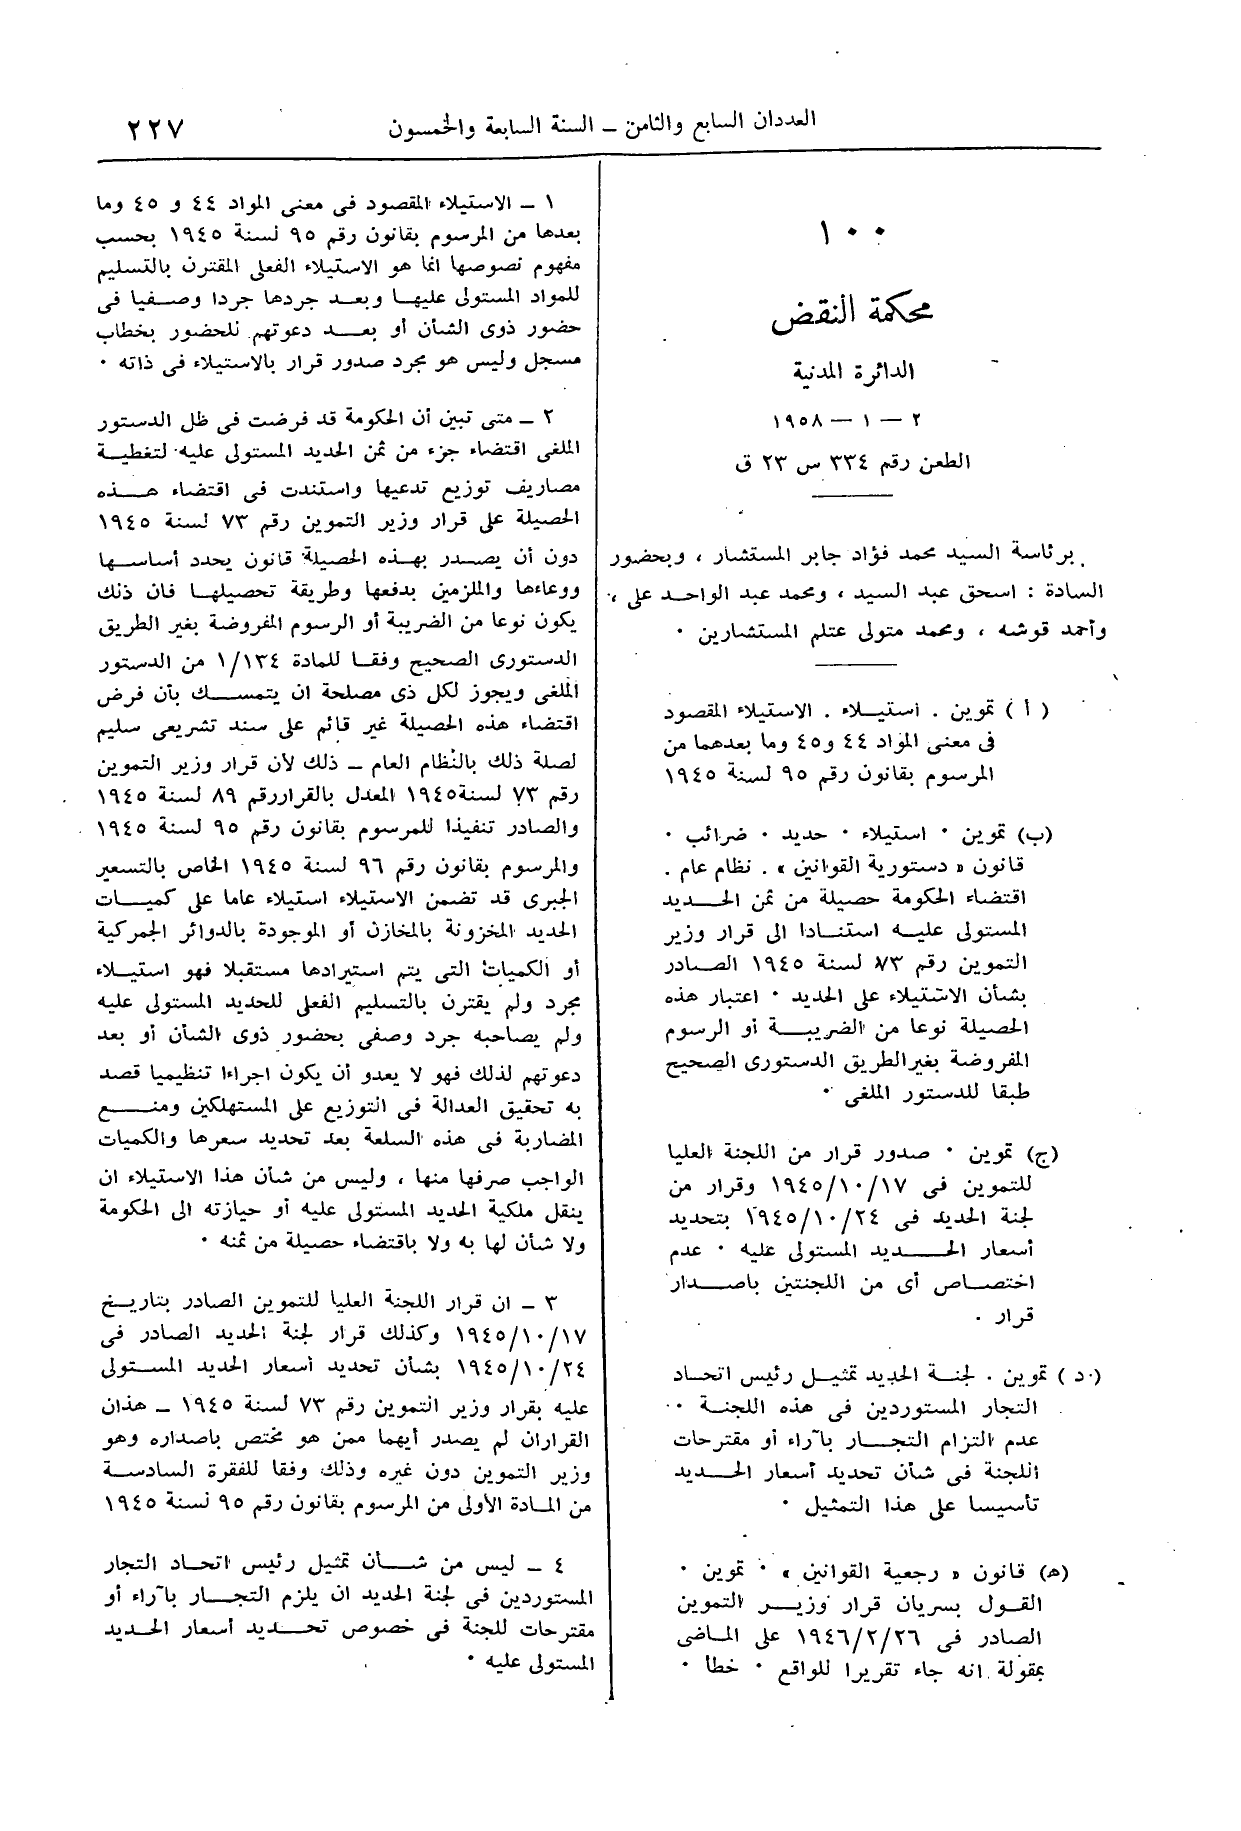 العددان السابع والثامن – السنة السابعة والخمسون
٢٢٧
١٠٠
محكمة النقض
الدائرة المدنية
٢ – ١ – ١٩٥٨
الطعن رقم ٣٣٤ س ٢٣ ق
برئاسة السيد محمد فؤاد جابر المستشار ، وبحضور
السادة : اسحق عبد السيد ، ومحمد عبد الواحد على ،
وأحمد قوشه ، ومحمد متولى عتلم المستشارين ٠
( أ ) تموين . استيلاء . الاستيلاء المقصود
فى معنى المواد ٤٤ و٤٥ وما بعدهما من
المرسوم بقانون رقم ٩٥ لسنة ١٩٤٥
(ب) تموين ٠ استيلاء ٠ حديد ٠ ضرائب ٠
قانون « دستورية القوانين » . نظام عام .
اقتضاء الحكومة حصيلة من ثمن الحديد
المستولى عليه استنادا الى قرار وزير
التموين رقم ٧٣ لسنة ١٩٤٥ الصادر
بشأن الاستيلاء على الحديد ٠ اعتبار هذه
الحصيلة نوعا من الضريبة أو الرسوم
المفروضة بغير الطريق الدستورى الصحيح
طبقا للدستور الملغى ٠
(ج) تموين ٠ صدور قرار من اللجنة العليا
للتموين فى ١٩٤٥/١٠/١٧ وقرار من
لجنة الحديد فى ١٩٤٥/١٠/٢٤ بتحديد
أسعار الحديد المستولى عليه ٠ عدم
اختصاص أى من اللجنتين باصدار
قرار .
(د) تموين . لجنة الحديد تمثيل رئيس اتحاد
التجار المستوردين فى هذه اللجنة ٠
عدم التزام التجار بآراء أو مقترحات
اللجنة فى شأن تحديد أسعار الحديد
تأسيسا على هذا التمثيل ٠
(هـ) قانون « رجعية القوانين » ٠ تموين ٠
القول بسريان قرار وزير التموين
الصادر فى ١٩٤٦/٢/٢٦ على الماضى
بمقولة انه جاء تقريرا للواقع ٠ خطأ ٠
١ – الاستيلاء المقصود فى معنى المواد ٤٤ و ٤٥ وما
بعدها من المرسوم بقانون رقم ٩٥ لسنة ١٩٤٥ بحسب
مفهوم نصوصها انما هو الاستيلاء الفعلى المقترن بالتسليم
للمواد المستولى عليها وبعد جردها جردا وصفيا فى
حضور ذوى الشأن أو بعد دعوتهم للحضور بخطاب
مسجل وليس هو مجرد صدور قرار بالاستيلاء فى ذاته ٠
٢ – متى تبين أن الحكومة قد فرضت فى ظل الدستور
الملغى اقتضاء جزء من ثمن الحديد المستولى عليه لتغطية
مصاريف توزيع تدعيها واستندت فى اقتضاء هذه
الحصيلة على قرار وزير التموين رقم ٧٣ لسنة ١٩٤٥
دون أن يصدر بهذه الحصيلة قانون يحدد أساسها
ووعاءها والملزمين بدفعها وطريقة تحصيلها فان ذلك
يكون نوعا من الضريبة أو الرسوم المفروضة بغير الطريق
الدستورى الصحيح وفقا للمادة ١/١٣٤ من الدستور
الملغى ويجوز لكل ذى مصلحة ان يتمسك بأن فرض
اقتضاء هذه الحصيلة غير قائم على سند تشريعى سليم
لصلة ذلك بالنظام العام – ذلك لأن قرار وزير التموين
رقم ٧٣ لسنة ١٩٤٥ المعدل بالقرار رقم ٨٩ لسنة ١٩٤٥
والصادر تنفيذا للمرسوم بقانون رقم ٩٥ لسنة ١٩٤٥
والمرسوم بقانون رقم ٩٦ لسنة ١٩٤٥ الخاص بالتسعير
الجبرى قد تضمن الاستيلاء استيلاء عاما على كميات
الحديد المخزونة بالمخازن أو الموجودة بالدوائر الجمركية
أو الكميات التى يتم استيرادها مستقبلا فهو استيلاء
مجرد ولم يقترن بالتسليم الفعلى للحديد المستولى عليه
ولم يصاحبه جرد وصفى بحضور ذوى الشأن أو بعد
دعوتهم لذلك فهو لا يعدو أن يكون اجراءا تنظيميا قصد
به تحقيق العدالة فى التوزيع على المستهلكين ومنع
المضاربة فى هذه السلعة بعد تحديد سعرها والكميات
الواجب صرفها منها ، وليس من شأن هذا الاستيلاء ان
ينقل ملكية الحديد المستولى عليه أو حيازته الى الحكومة
ولا شأن لها به ولا باقتضاء حصيلة من ثمنه ٠
٣ – ان قرار اللجنة العليا للتموين الصادر بتاريخ
١٩٤٥/١٠/١٧ وكذلك قرار لجنة الحديد الصادر فى
١٩٤٥/١٠/٢٤ بشأن تحديد أسعار الحديد المستولى
عليه بقرار وزير التموين رقم ٧٣ لسنة ١٩٤٥ – هذان
القراران لم يصدر أيهما ممن هو مختص باصداره وهو
وزير التموين دون غيره وذلك وفقا للفقرة السادسة
من المادة الأولى من المرسوم بقانون رقم ٩٥ لسنة ١٩٤٥
٤ – ليس من شأن تمثيل رئيس اتحاد التجار
المستوردين فى لجنة الحديد ان يلزم التجار بآراء أو
مقترحات للجنة فى خصوص تحديد أسعار الحديد
المستولى عليه ٠